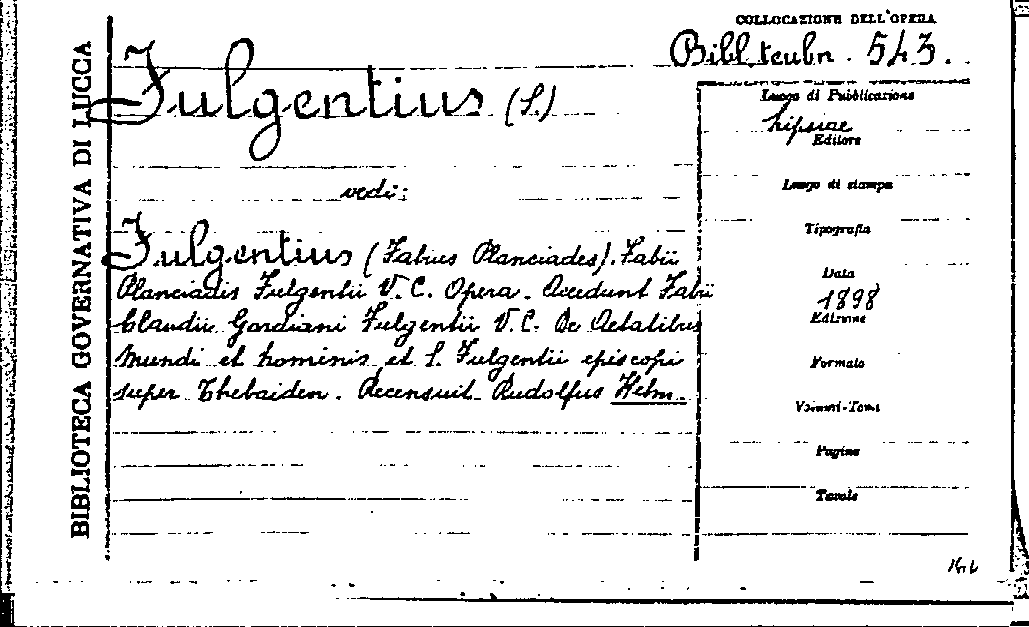 BIBLIOTECA GOVERNATIVA DI LUCCA
COLLOCAZIONE DELL'OPERA
Bibl. teubn. 543.
Fulgentius (S.)
vedi:
Fulgentius (Fabius Planciades). Fabii
Planciadis Fulgentii V. C. Opera. Accedunt Fabii
Claudii Gordiani Fulgentii V. C. De Aetatibus
mundi et hominis et S. Fulgentii episcopi
super Thebaiden. Recensuit Rudolfus Helm.
Luogo di Pubblicazione
Lipsiae
Editore
Luogo di stampa
Tipografia
Data
1898
Edizione
Formato
Volumi-Tomi
Pagine
Tavole